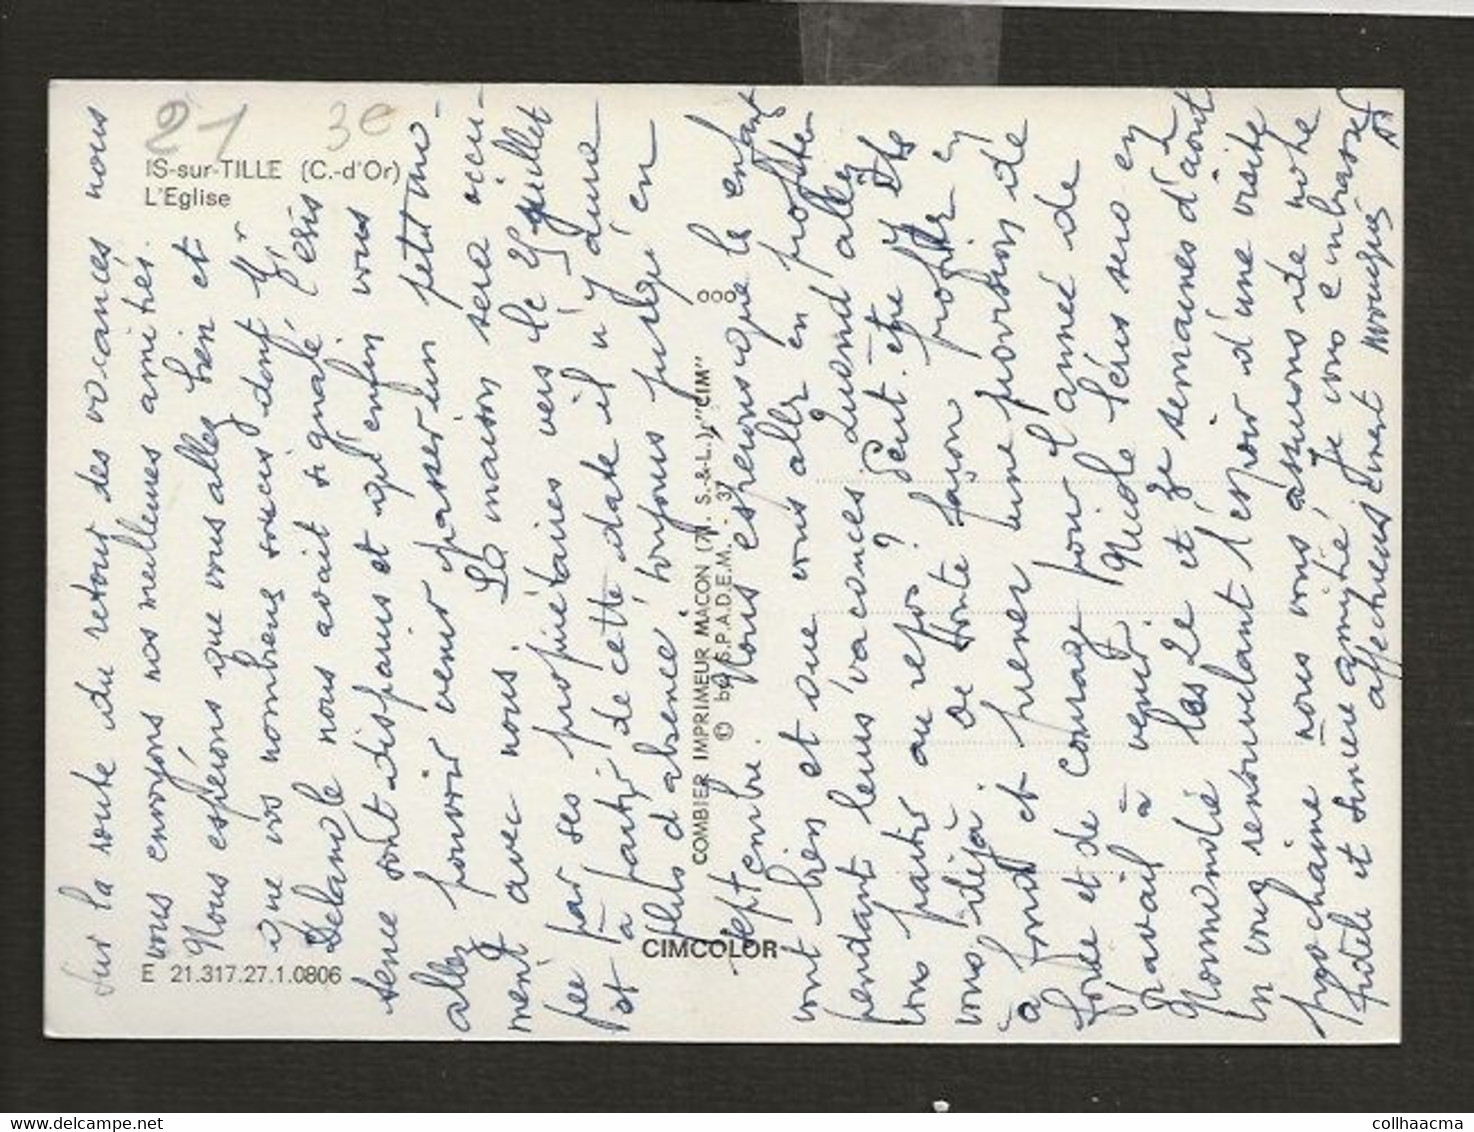 21 3e
IS-sur-TILLE (C.-d'Or)
L'Eglise
Sur la route du retour des vacances nous
vous envoyons nos meilleures amitiés.
Nous espérons que vous allez bien et
que vos nombreux soucis dont Mr
Delanole nous avait signalé l'exis
tence sont disparus et qu'enfin vous
allez pouvoir venir passer un petit mo-
ment avec nous. La maison sera occu-
pée par ses propriétaires vers le 25 juillet
et à partir de cette date il n'y aura
plus d'absence toujours jusqu'en
septembre. Nous espérons que les enfants
vont bien et que vous allez en profiter
pendant leurs vacances. Quand allez
vous partir au repos? Peut-être y êtes
vous déjà. De toute façon profitez en
à fond et prenez une provision de
force et de courage pour l'année de
travail à venir. Nicole sera en
Normandie les 2e et 3e semaines d'août
En vous renouvelant l'espoir d'une visite
prochaine nous vous assurons de notre
fidèle et sincère amitié. Je vous embrasse
affectueusement
COMBIER IMPRIMEUR MACON (71. S.-&-L.) "CIM"
© by S.P.A.D.E.M. 37
CIMCOLOR
E 21.317.27.1.0806
collhaacma